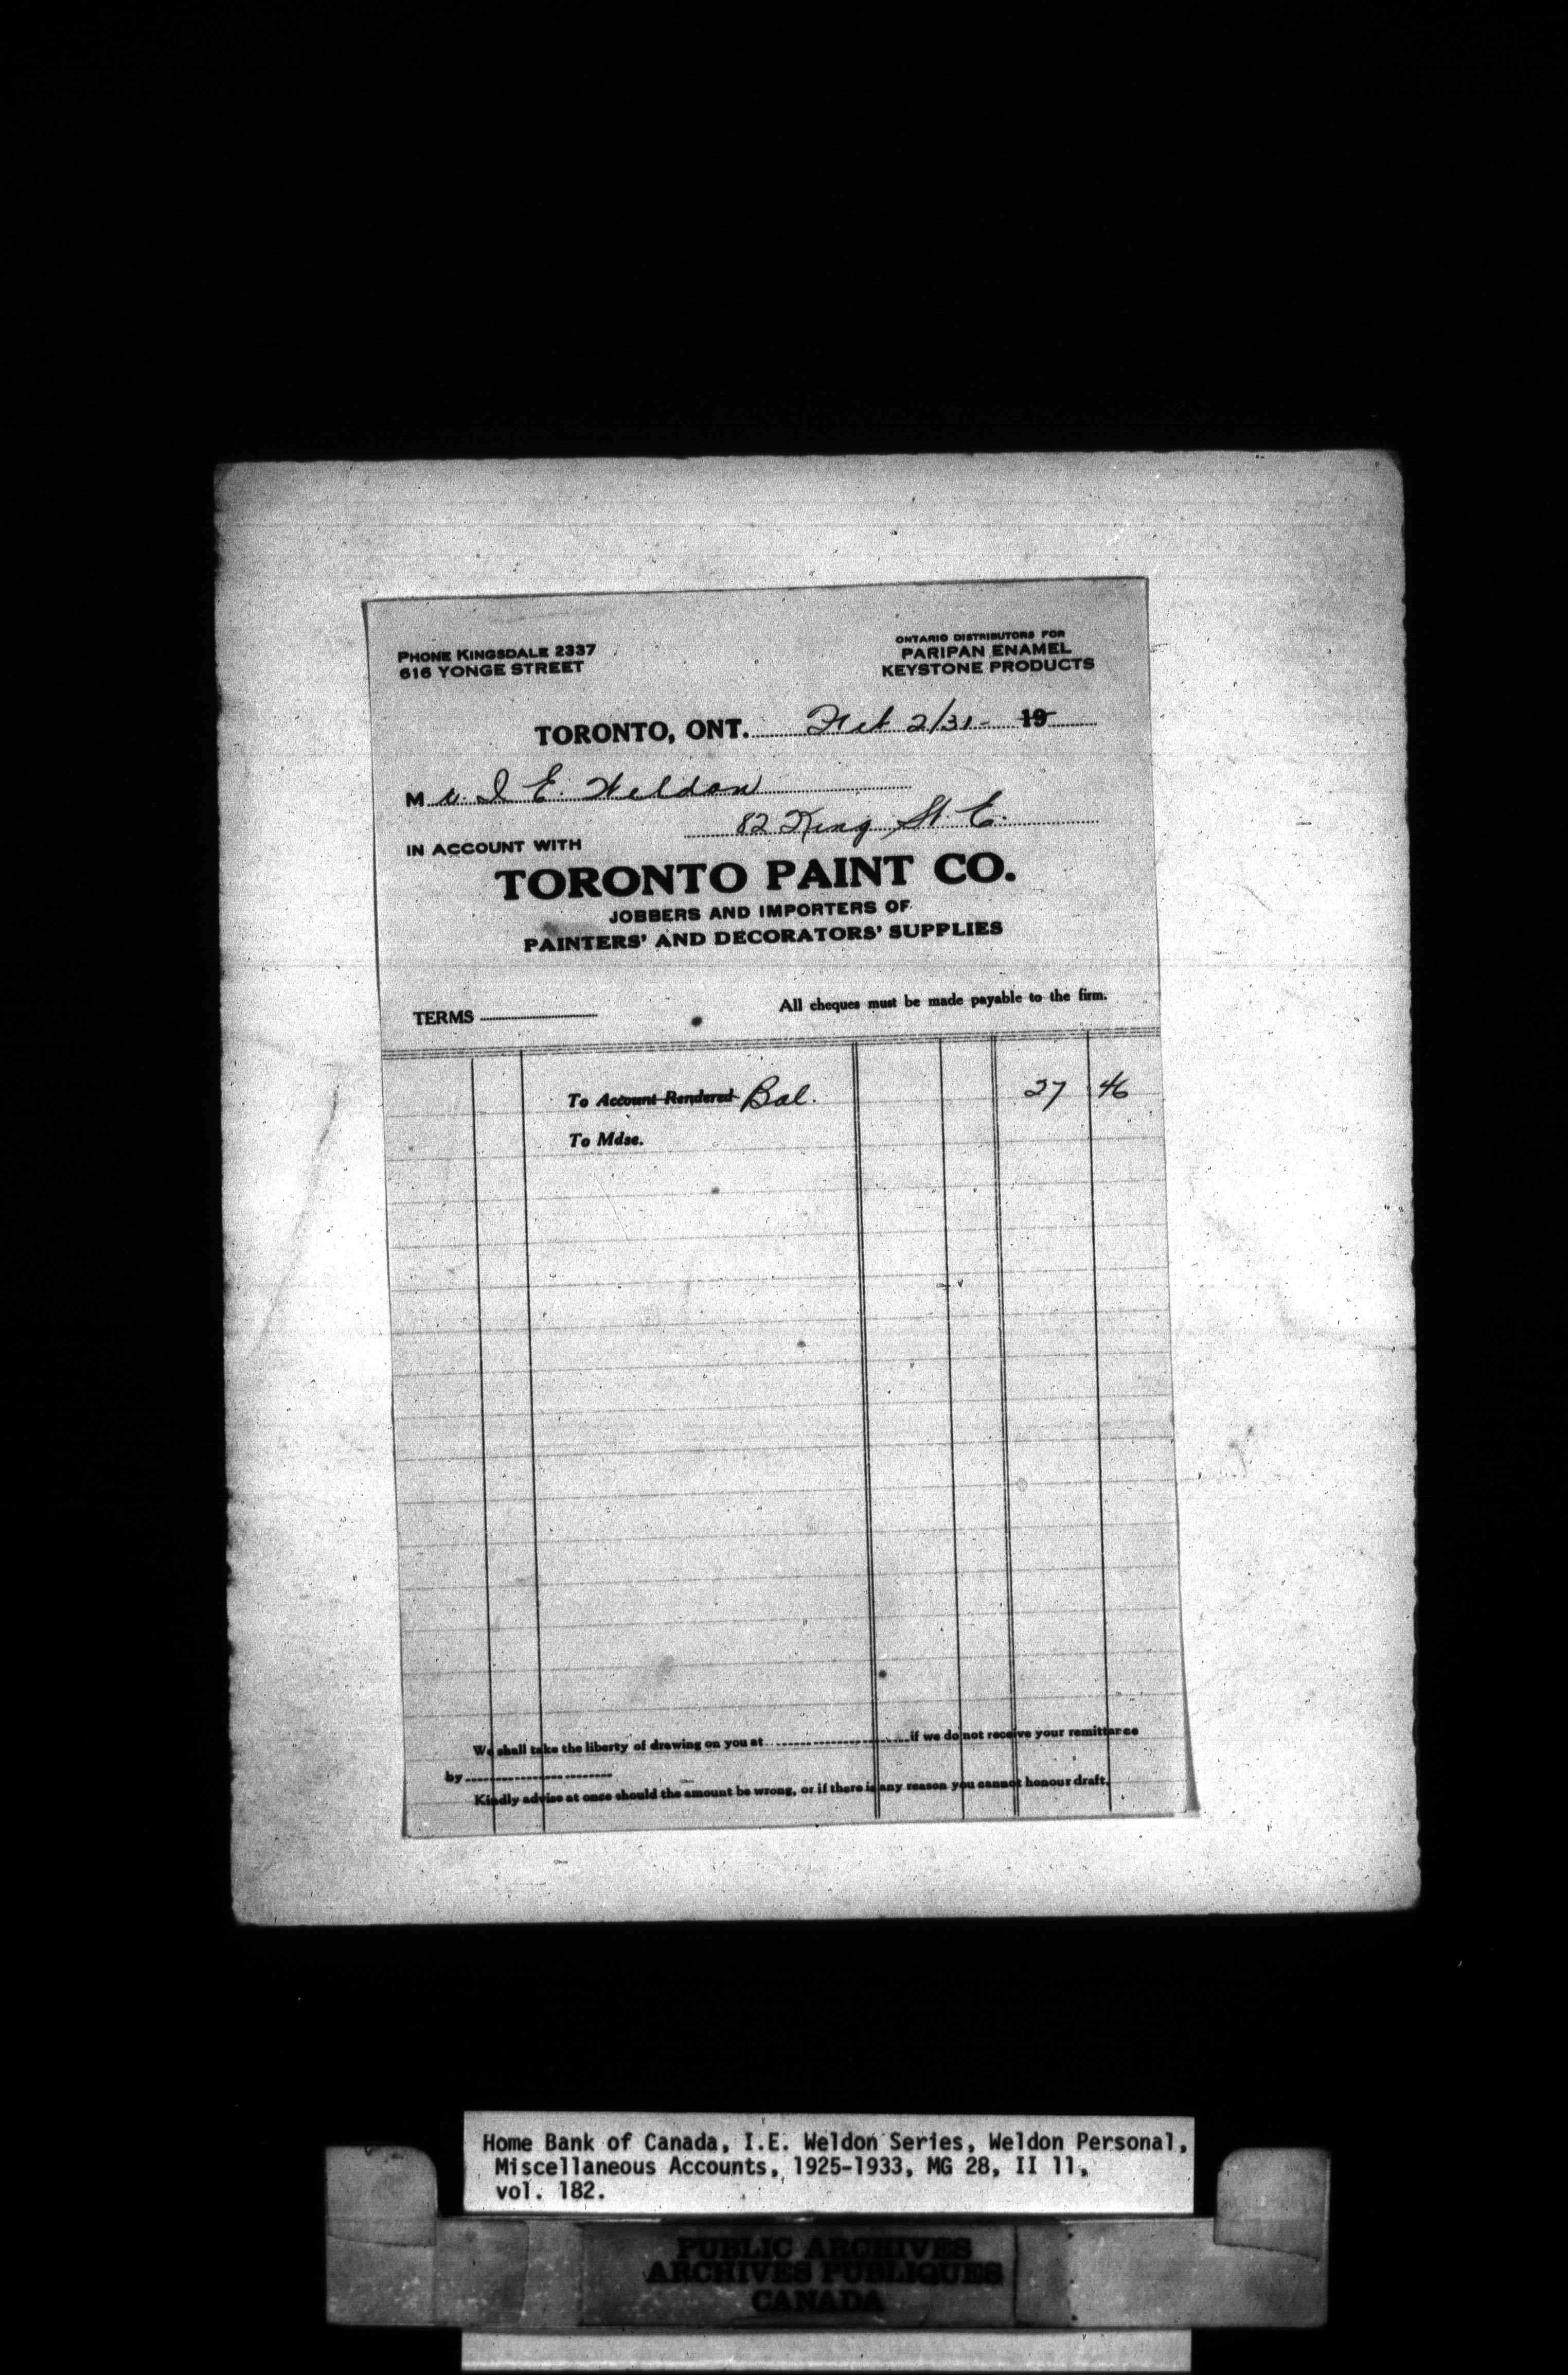 PHONE KINGSDALE 2337
616 YONGE STREET
ONTARIO DISTRIBUTORS FOR
PARIPAN ENAMEL
KEYSTONE PRODUCTS
TORONTO, ONT. Feb 2/31- 19
Mr. I E. Weldon
82 King St E.
IN ACCOUNT WITH
TORONTO PAINT CO.
JOBBERS AND IMPORTERS OF
PAINTERS' AND DECORATORS' SUPPLIES
TERMS
All cheques must be made payable to the firm.
To Account Rendered Bal. 27 46
To Mdse.
We shall take the liberty of drawing on you at if we do not receive your remittance
by
Kindly advise at once should the amount be wrong, or if there is any reason you cannot honour draft.
Home Bank of Canada, I.E. Weldon Series, Weldon Personal,
Miscellaneous Accounts, 1925-1933, MG 28, II 11,
vol. 182.
PUBLIC ARCHIVES
ARCHIVES PUBLIQUES
CANADA